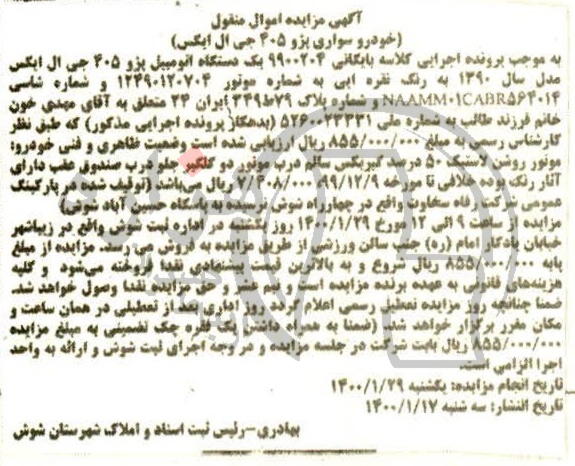 آگهی مزایده اموال منقول
(خودرو سواری پژو ۴۰۵ جی ال ایکس)
به موجب پرونده اجرایی کلاسه بایگانی ۹۹۰۰۲۰۴ یک دستگاه اتومبیل پژو ۴۰۵ جی ال ایکس
مدل سال ۱۳۹۰ به رنگ نقره ایی به شماره موتور ۱۲۴۹۰۱۲۰۷۰۴ و شماره شاسی
NAAMM۰۱CABR۵۶۴۰۱۴ و شماره پلاک ۷۹ط۳۴۹ ایران ۲۴ متعلق به آقای مهدی خون
خانم فرزند طالب به شماره ملی ۵۲۶۰۰۲۳۳۳۱ (بدهکار پرونده اجرایی مذکور) که طبق نظر
کارشناس رسمی به مبلغ ۸۵۵/۰۰۰/۰۰۰ ریال ارزیابی شده است وضعیت ظاهری و فنی خودرو:
موتور روشن لاستیک ۵۰ درصد گیربکس سالم درب موتور دو گلگیر جلو درب صندوق عقب دارای
آثار رنگ بوده خلافی تا مورخه ۹۹/۱۲/۹ ۷/۴۰۸/۰۰۰ ریال می‌باشد (توقیف شده در پارکینگ
عمومی شرکت رفاه سخاوت واقع در چهارراه شوش نرسیده به پاسگاه حسین آباد شوش)
مزایده از ساعت ۹ الی ۱۲ مورخ ۱۴۰۰/۱/۲۹ روز یکشنبه در اداره ثبت شوش واقع در زیباشهر
خیابان یادگار امام (ره) جنب سالن ورزشی از طریق مزایده به فروش می رسد. مزایده از مبلغ
پایه ۸۵۵/۰۰۰/۰۰۰ ریال شروع و به بالاترین قیمت پیشنهادی نقدا فروخته می‌شود و کلیه
هزینه‌های قانونی به عهده برنده مزایده است و نیم عشر و حق مزایده نقدا وصول خواهد شد.
ضمنا چنانچه روز مزایده تعطیل رسمی اعلام گردد روز اداری بعد از تعطیلی در همان ساعت و
مکان مقرر برگزار خواهد شد. (ضمنا به همراه داشتن یک فقره چک تضمینی به مبلغ مزایده
۸۵۵/۰۰۰/۰۰۰ ریال بابت شرکت در جلسه مزایده و در وجه اجرای ثبت شوش و ارائه به واحد
اجرا الزامی است.
تاریخ انجام مزایده: یکشنبه ۱۴۰۰/۱/۲۹
تاریخ انتشار: سه شنبه ۱۴۰۰/۱/۱۷
بهادری-رئیس ثبت اسناد و املاک شهرستان شوش